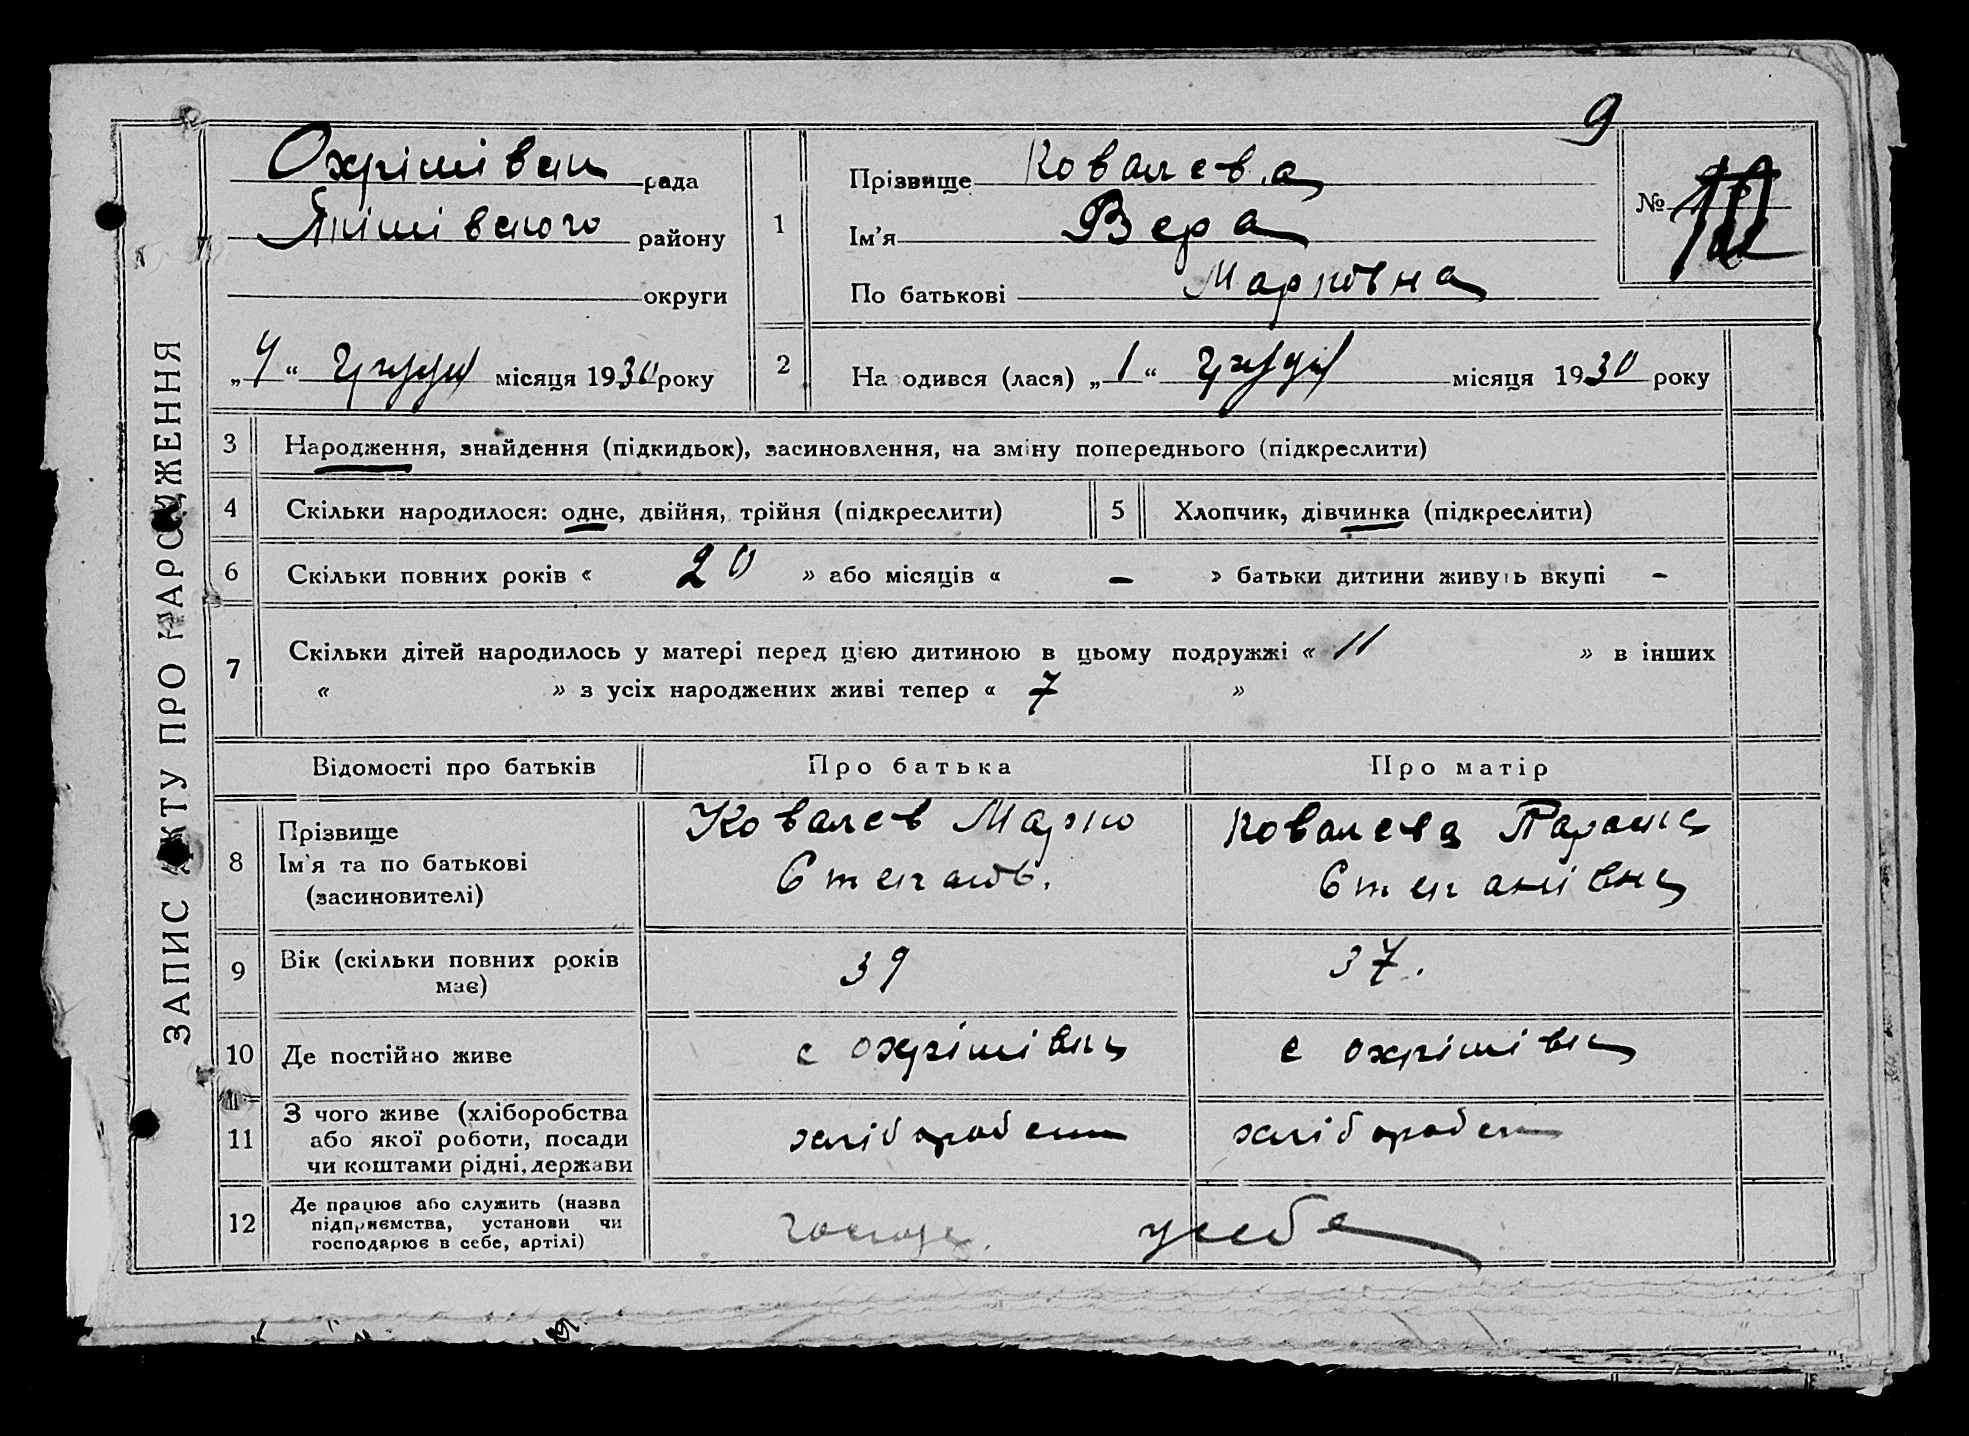 ЗАПИС АКТУ ПРО НАРОДЖЕННЯ
9
Охрімівськ рада
Якимівського району
округи
„4“ грудня місяця 1930 року
1
Прізвище Ковалева
Ім'я Вера
По батькові Марковна
№
2
Народився (лася) „1“ грудня місяця 1930 року
3 Народження, знайдення (підкидьок), засиновлення, на зміну попереднього (підкреслити)
4 Скільки народилося: одне, двійня, трійня (підкреслити)
5 Хлопчик, дівчинка (підкреслити)
6 Скільки повних років « 20 » або місяців « – » батьки дитини живуть вкупі –
7 Скільки дітей народилось у матері перед цією дитиною в цьому подружжі « 11 » в інших
« » з усіх народжених живі тепер « 7 »
Відомості про батьків Про батька Про матір
8 Прізвище
Ім'я та по батькові
(засиновителі)
Ковалев Марко
Степанов.
Ковалева Параска
Степанівна
9 Вік (скільки повних років
має)
39
37.
10 Де постійно живе
с Охрімівка
с Охрімівка
11 З чого живе (хліборобства
або якої роботи, посади
чи коштами рідні, держави
хлібороб
хлібороб
12 Де працює або служить (назва
підприємства, установи чи
господарює в себе, артілі)
господ. у себе